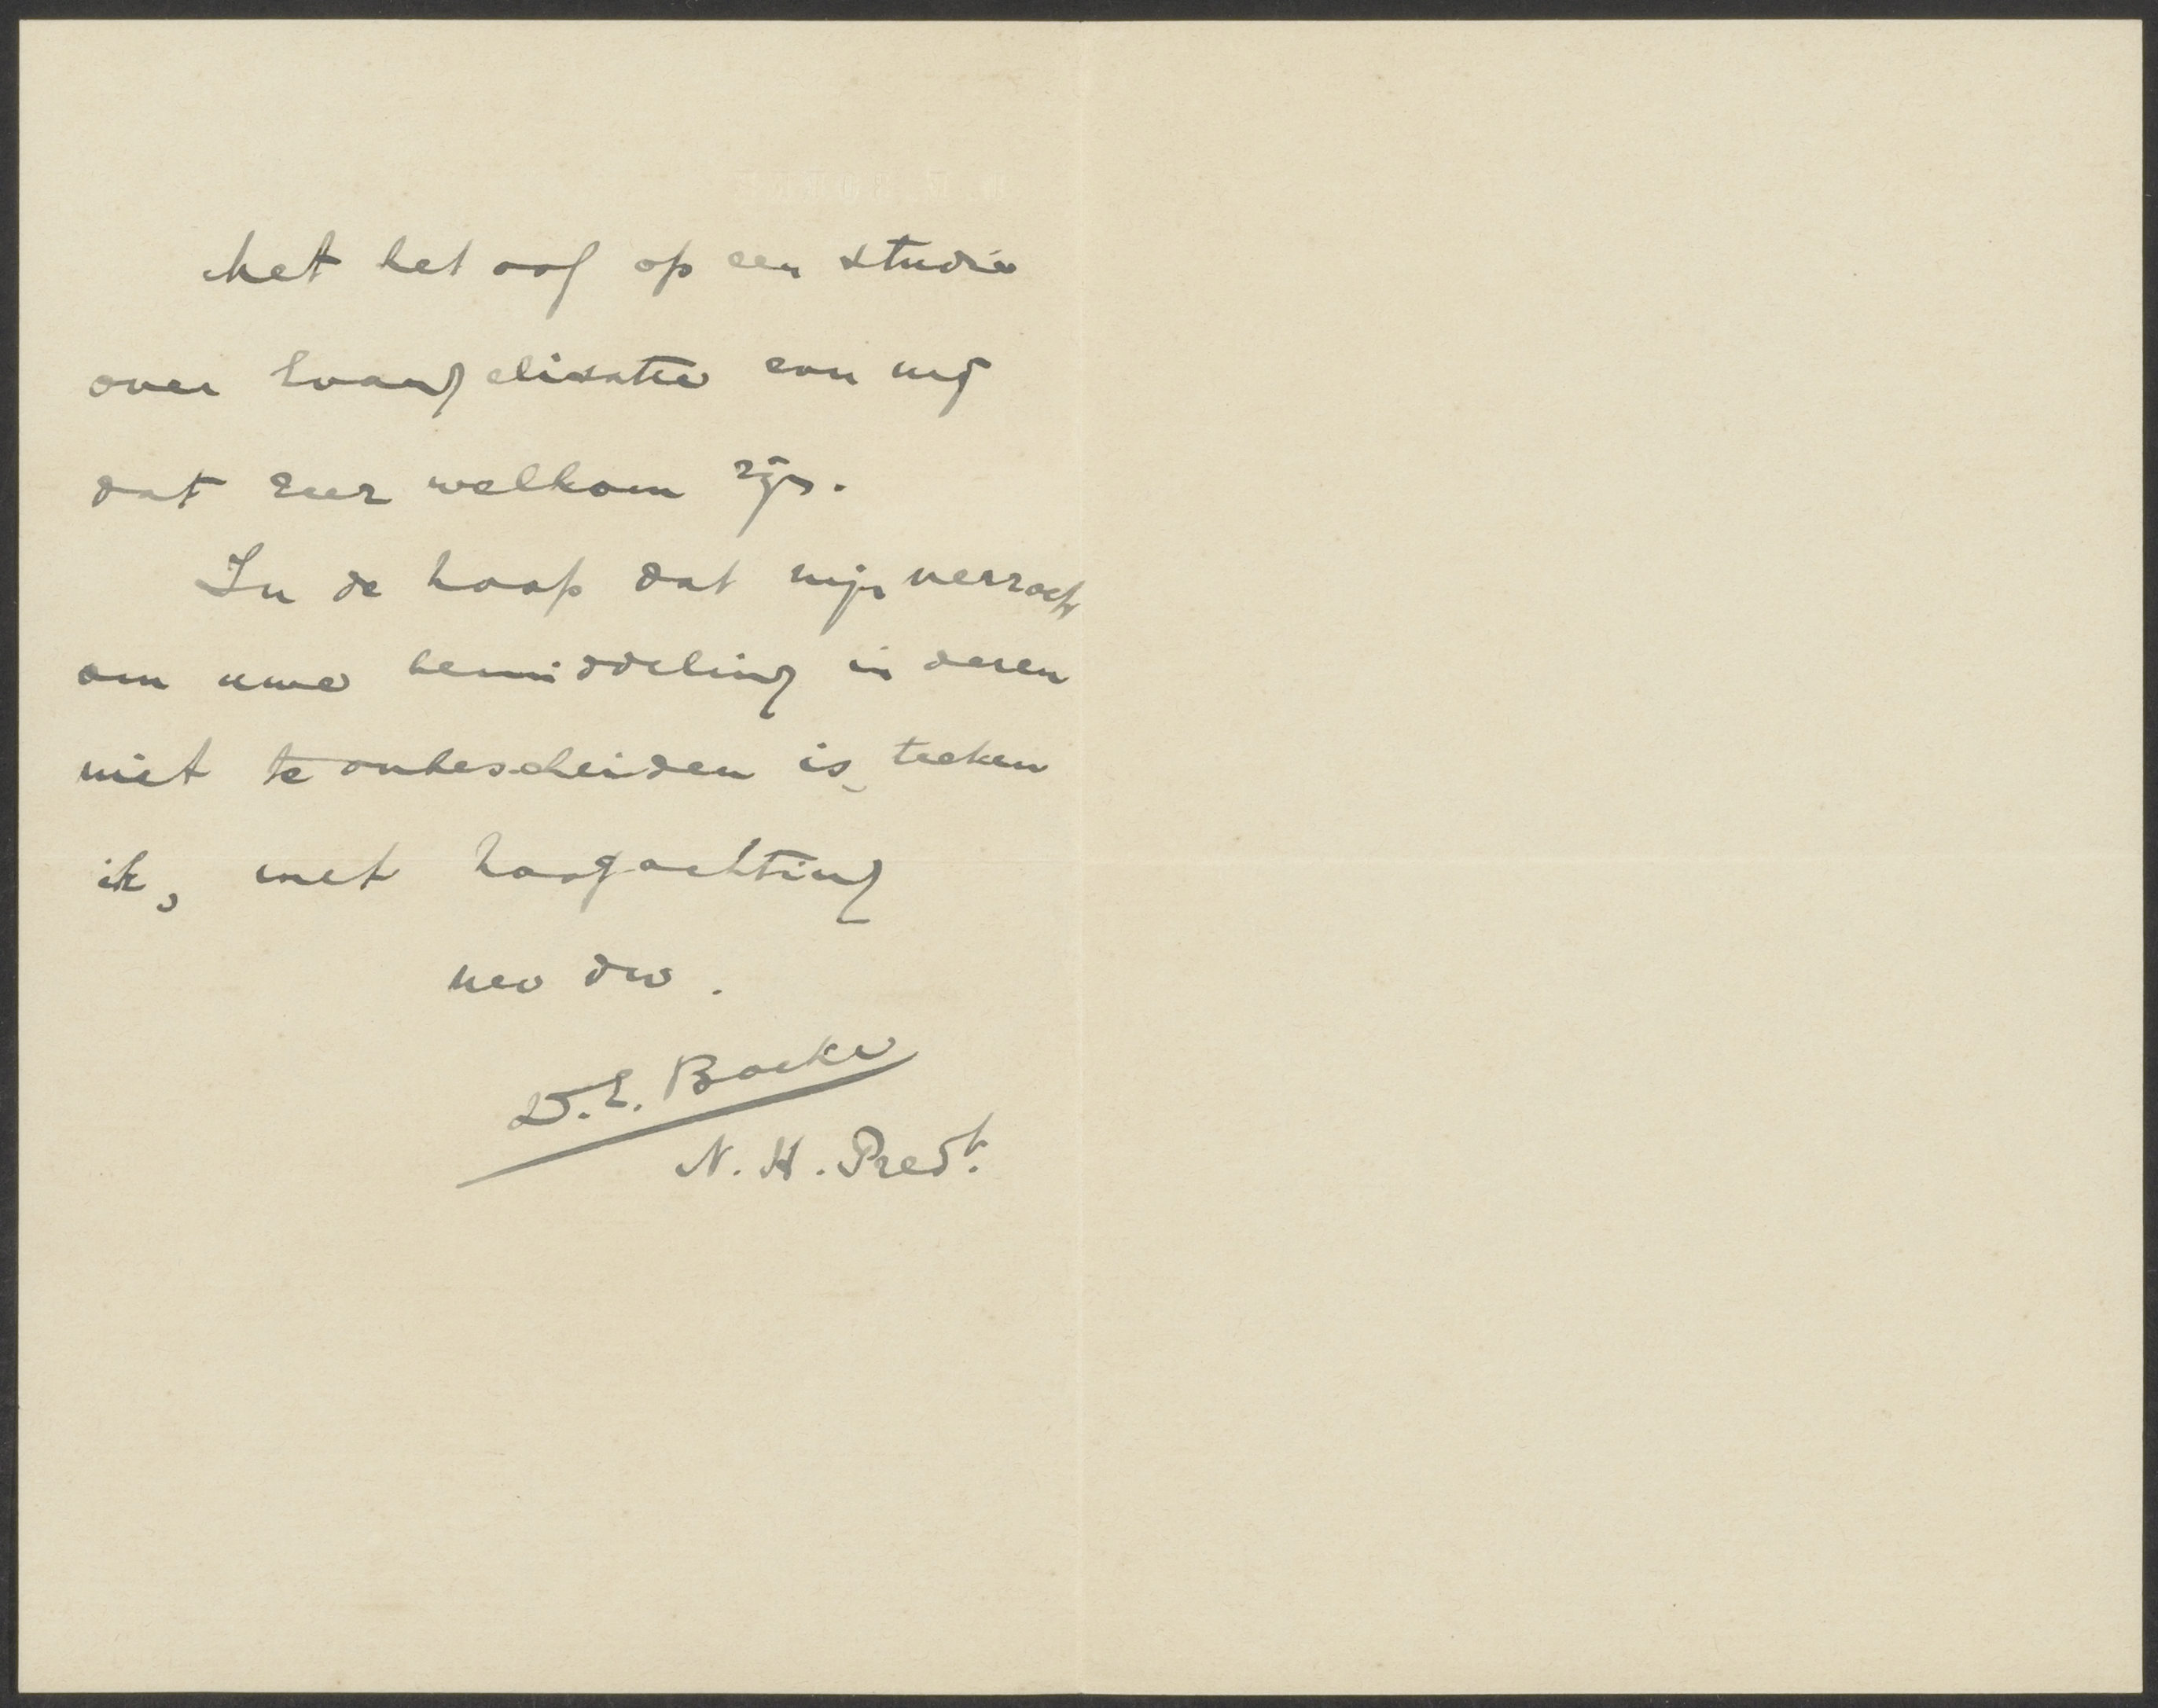 Met het oog op een studie
over Evangelisatie zou mij
dat zeer welkom zijn.
In de hoop dat mijn verzoek
om uwe bemiddeling in dezen
niet te onbescheiden is, teeken
ik, met hoogachting
Uw dw.
D.E. Boeke
N. H. Predt.